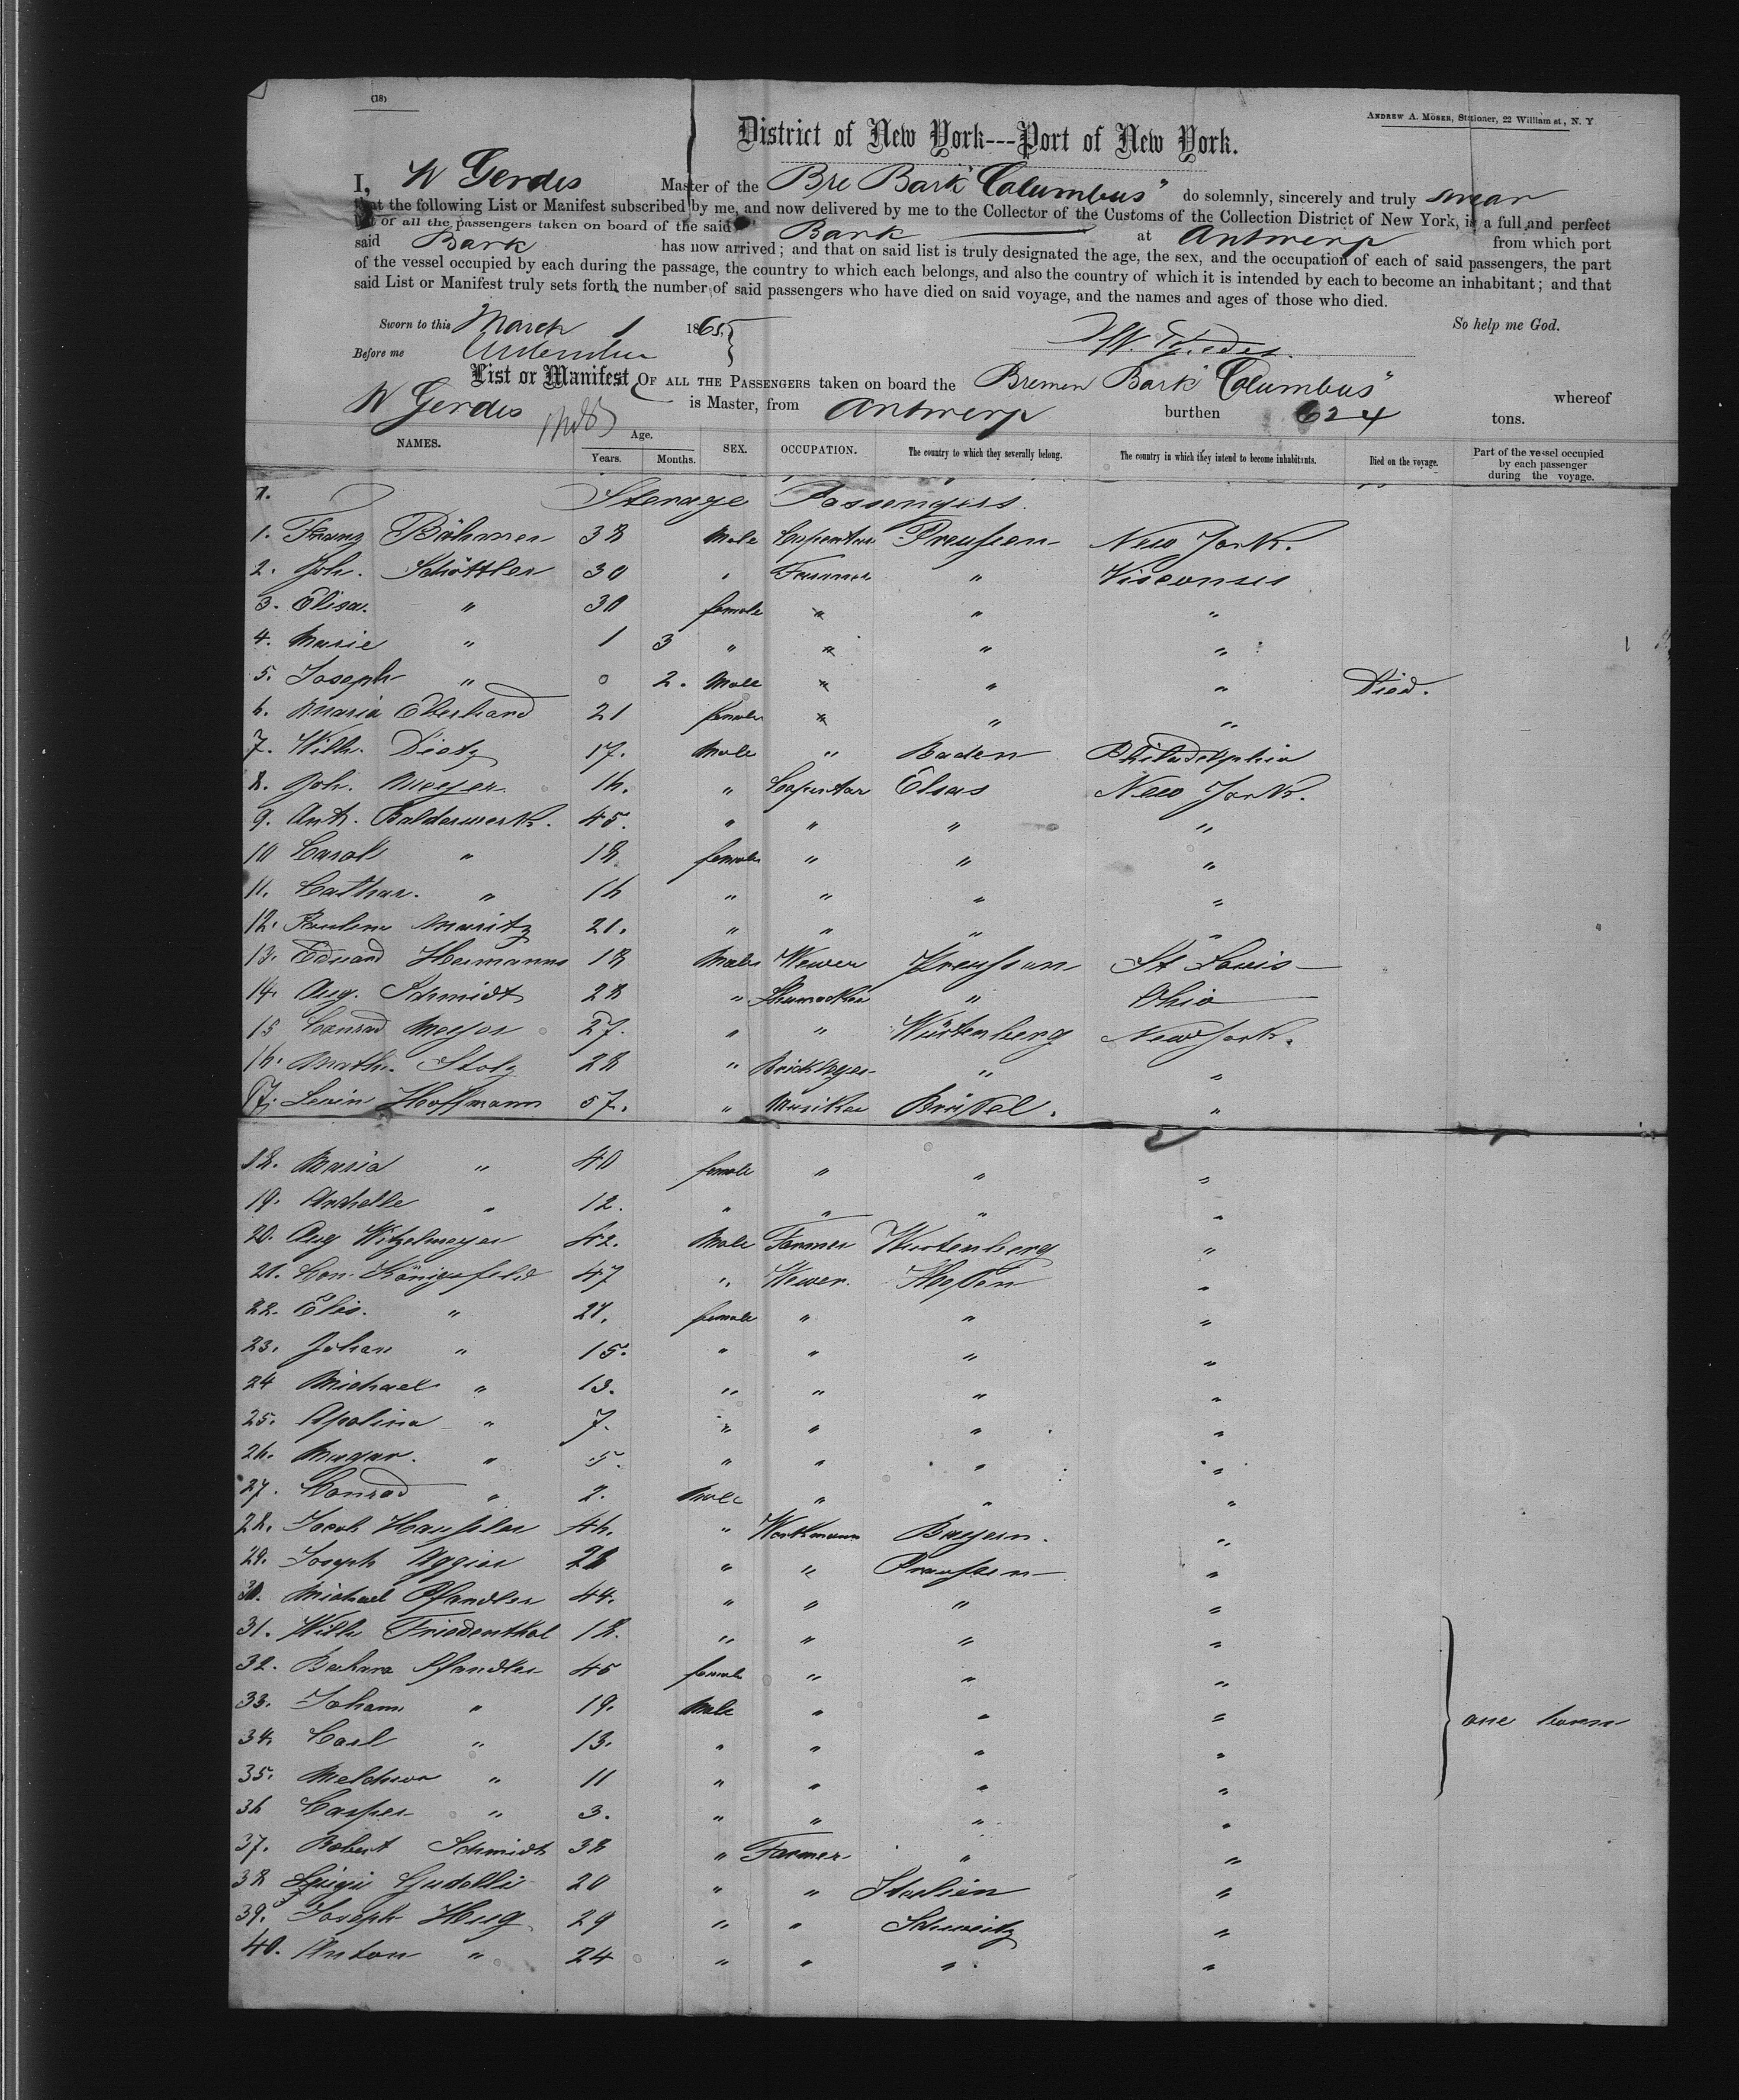 (18)
ANDREW A. MÖSER, Stationer, 22 William st., N. Y
District of New York---Port of New York.
I, W Gerdes Master of the Bre Bark "Columbus" do solemnly, sincerely and truly swear
that the following List or Manifest subscribed by me, and now delivered by me to the Collector of the Customs of the Collection District of New York, is a full and perfect
list of all the passengers taken on board of the said Bark at Antwerp from which port
said Bark has now arrived; and that on said list is truly designated the age, the sex, and the occupation of each of said passengers, the part
of the vessel occupied by each during the passage, the country to which each belongs, and also the country of which it is intended by each to become an inhabitant; and that
said List or Manifest truly sets forth the number of said passengers who have died on said voyage, and the names and ages of those who died.
Sworn to this March 1 1865. So help me God.
Before me
List or Manifest OF ALL THE PASSENGERS taken on board the Bremen Bark "Columbus" whereof
W Gerdes is Master, from Antwerp burthen 624 tons.
NAMES. Age. Years. Months. SEX. OCCUPATION. The country to which they severally belong. The country in which they intend to become inhabitants. Died on the voyage. Part of the vessel occupied by each passenger during the voyage.
Sterage Passengers.
1. Franz Böhmer 38 Male Carpenter Preussen New York.
2. Joh. Schöttler 30 " Farmer " Visconsis
3. Elisa. " 30 female " " "
4. Marie " 1 3 " " " "
5. Joseph " 0 2. Male " " " Died.
6. Maria Eberhard 21 female " " "
7. Wilh. Dietz 17. Male " Baden Philadelphia
8. Joh. Meyer 16. " Carpentar Elsas New York.
9. Ant. Balderwerk. 45. " " " "
10 Carol " 18 female " " "
11. Cathar. " 16 " " " "
12. Paulene Moritz 21. " " " "
13. Eduard Hermanns 18 Male Wewer Preussen St Louis
14. Aug. Schmidt 28 " Shumacker " Ohio
15 Conrad Meyer 27. " " Würtemberg New York.
16. Math. Stolz 28 " Bricklayer " "
17. Levin Hoffmann 57. " Musiker Brüssel. "
18. Maria " 40 female " " "
19. " 12. " " " "
20. Aug Witzelmeyer 42. Male Farmer Wurtemberg "
21. Con. Königsfeld 47 " Wewer. Hessen "
22. Elis. " 27. female " " "
23. Johan " 15. " " " "
24 Michael " 13. " " " "
25. Apolina " 7. " " " "
26. Magar. " 5. " " " "
27. Conrad " 2. Male " " "
28. Jacob Haussler 46. " Workmann Bayern. "
29. Joseph Aggier 28 " " Preussen "
30. Michael Pfandler 44. " " " "
31. Wilh Friedenthal 18. " " " "
32. Barbara Pfandler 45 female " " "
33. Johann " 19. Male " " " one born
34. Carl " 13. " " " "
35. Melchior " 11 " " " "
36 Casper " 3. " " " "
37. Robert Schmidt 38 " Farmer " "
38 Luigi Gudelli 20 " " Italien "
39. Joseph Hug 29 " " Schweitz "
40. Anton " 24 " " " "